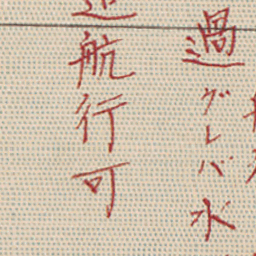 過グレバ水
航行可